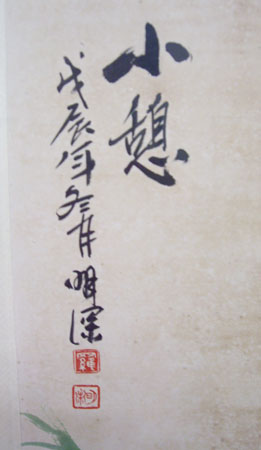 小憩
戊辰年冬月明深